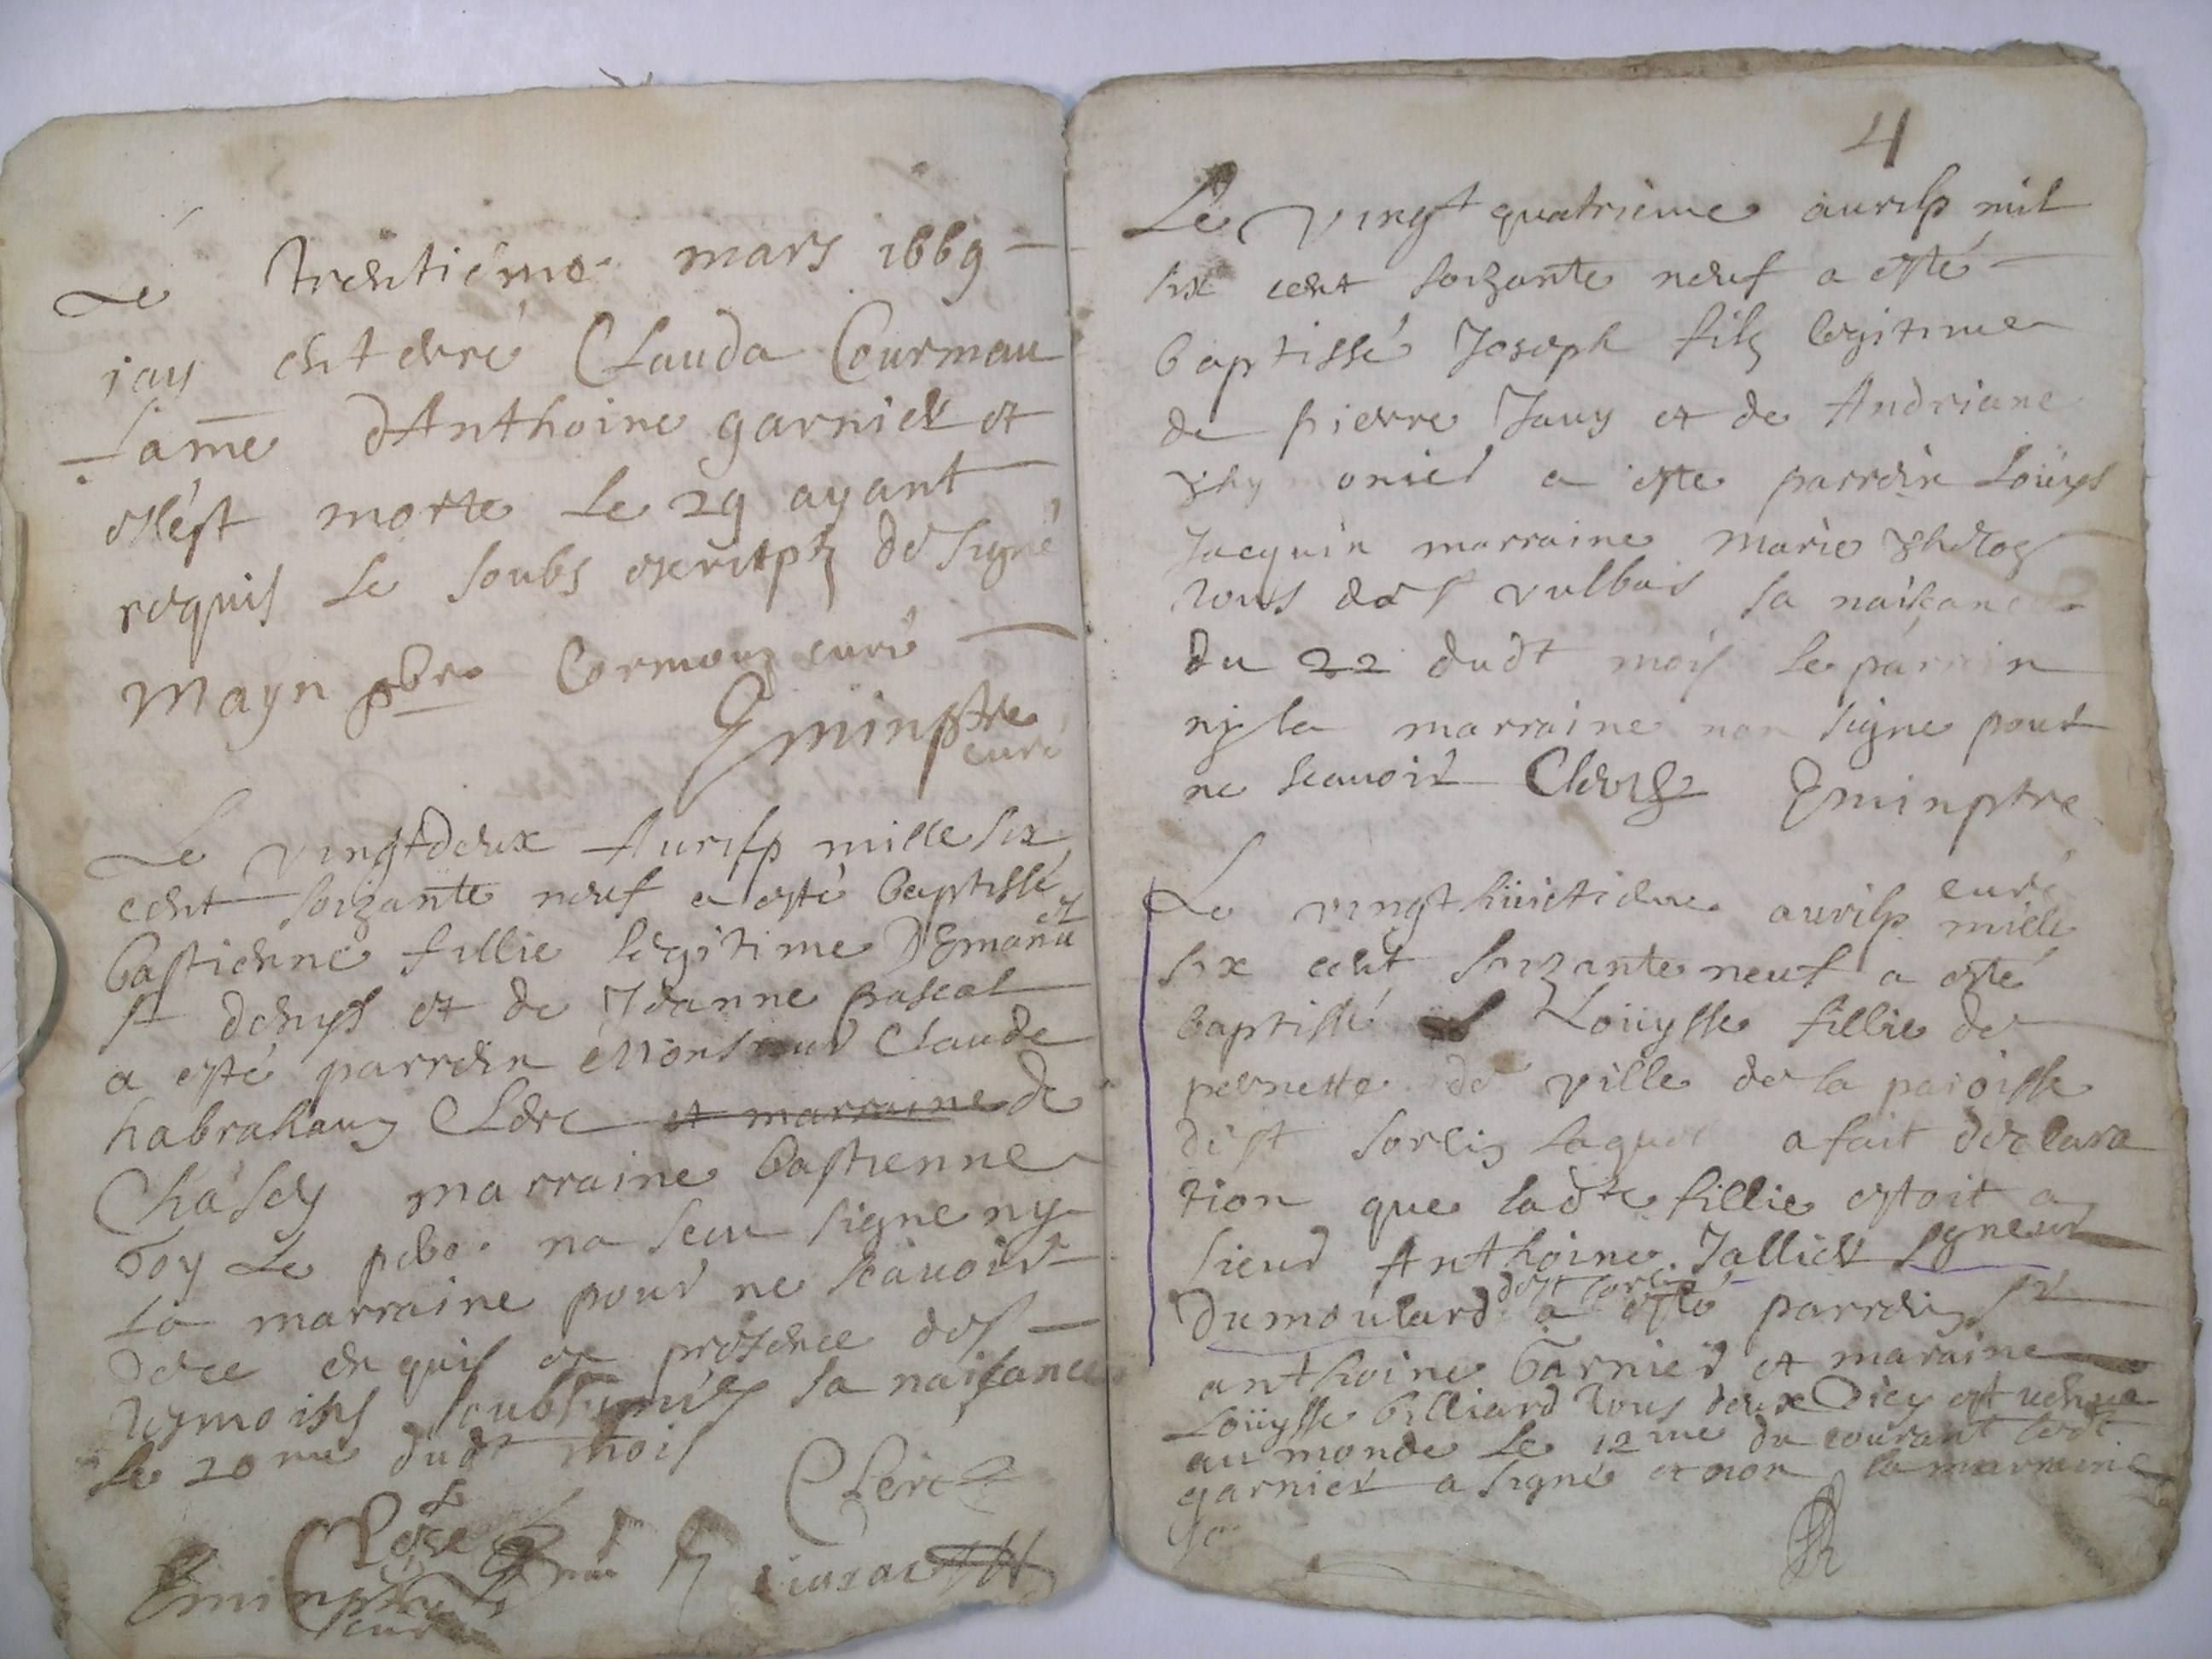 Le trentiéme mars 1669
jay enterré Clauda Courmau
fame d'Anthoine garnier et
ellést morte le 29 ayant
requis le soubs escriptz de signé
Mayn pbre curé
Eminptre
curé
Le vingtdeux Aurilp mille six
cent soizante neuf a esté baptissé
bastienne fillie legitime D'Emanuel
st denys et de Jeanne pascal
a esté parrein Monsieur Claude
habraham Clerc et marraine de
Chásey marraine bastienne
Le na sceu signe ny
la marraine pour ne scauoir
de ce enquis en présence des
tesmoins soubsignés sa naissance
le 20me dudt mois
Clerc
Eminptre
curé
4
Le vingt quatrieme aurilp mil
six cent soizante neuf a esté
baptissé Joseph filz legitime
de pierre Jauy et de Andriane
a este parrein Louys
Jacquin marraine Marie
tous de st vulbas sa naisance
du 22 dudt mois le parrein
ny la marraine non signe pour
ne scauoir Clerc Eminptre
curé
Le vingt huictieme aurilp mille
six cent soizante neuf a esté
baptissé Louysse fillie de
pernette de ville de la paroisse
dist sorlin a fait declara
tion que ladte fillie estoit a
sieur Anthoine Jallier sgneur
dumoulard dist sorlin a esté parrein sr
anthoine Garnier et maraine
Louysse billiard tous deux dicy est uenue
au monde le 12me du courant ledt
garnier a signé et non la marraine